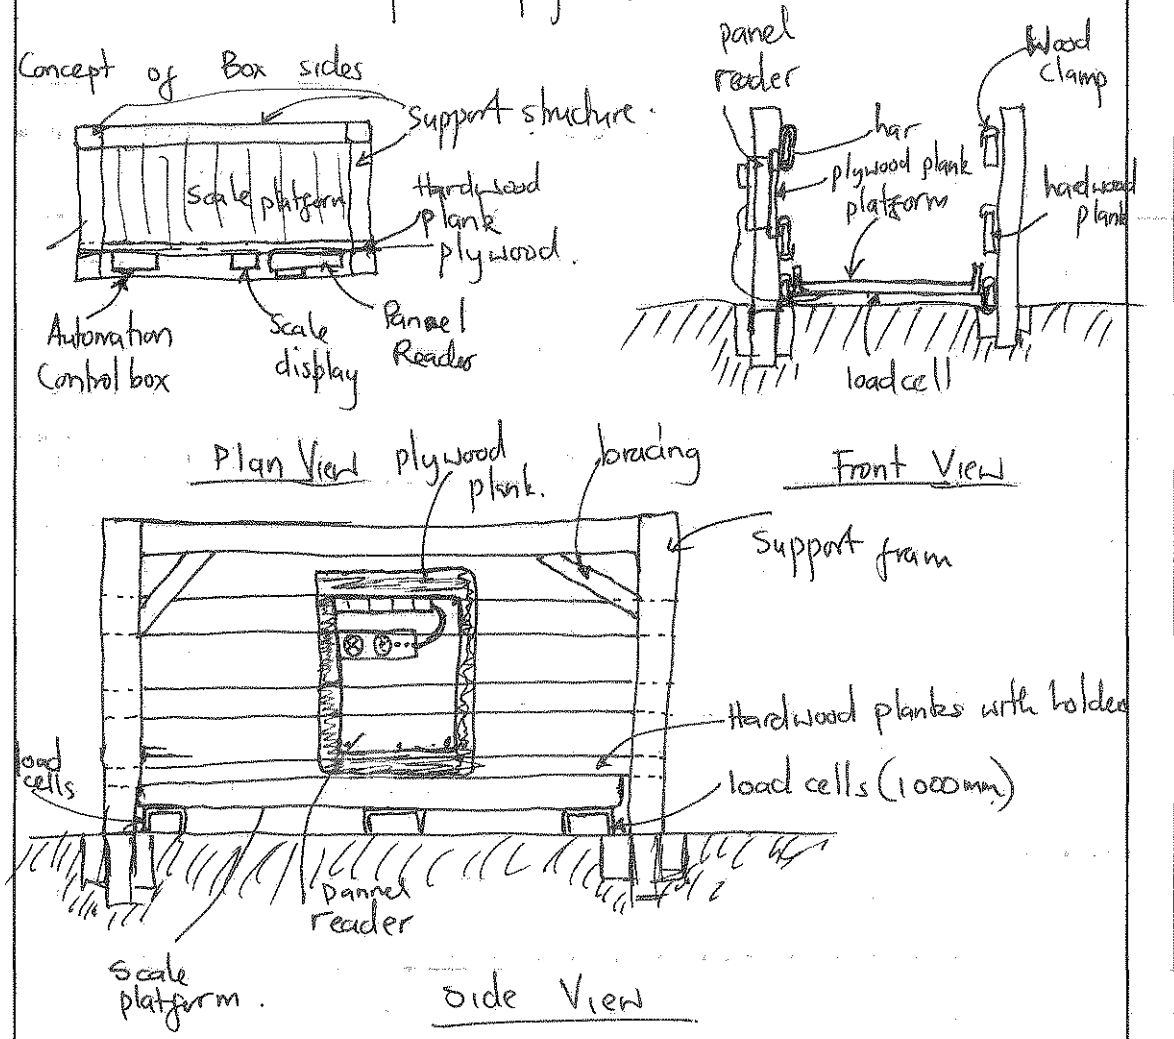 Concept of Box sides
Support structure.
Scale platform
Hardwood
plank
plywood.
Automation
Control box
Scale
display
Pannel
Reader
Plan View
panel
reader
Wood
clamp
har
plywood plank
platform
hardwood
plank
loadcell
Front View
plywood
plank.
bracing
Support fram
Hardwood planks with holder
load cells (1000mm)
load
cells
Pannel
reader
Scale
platform.
Side View